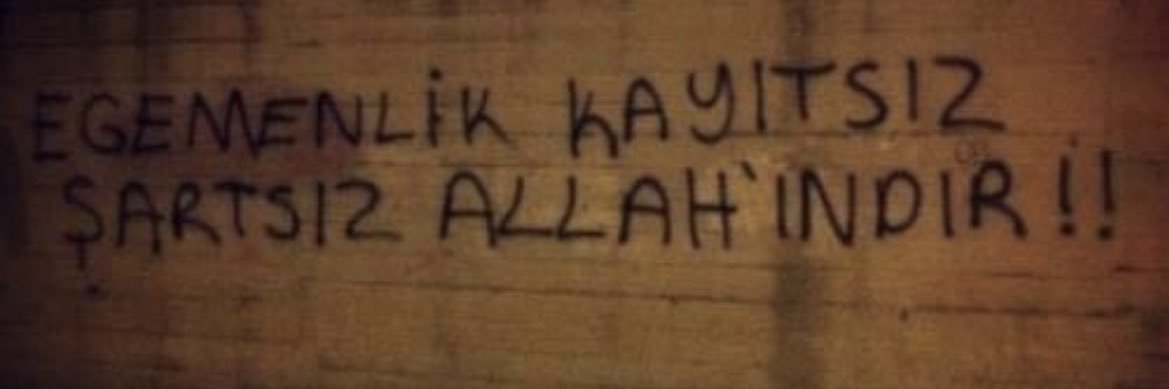 EGEMENLİK KAYITSIZ
ŞARTSIZ ALLAH'INDIR !!